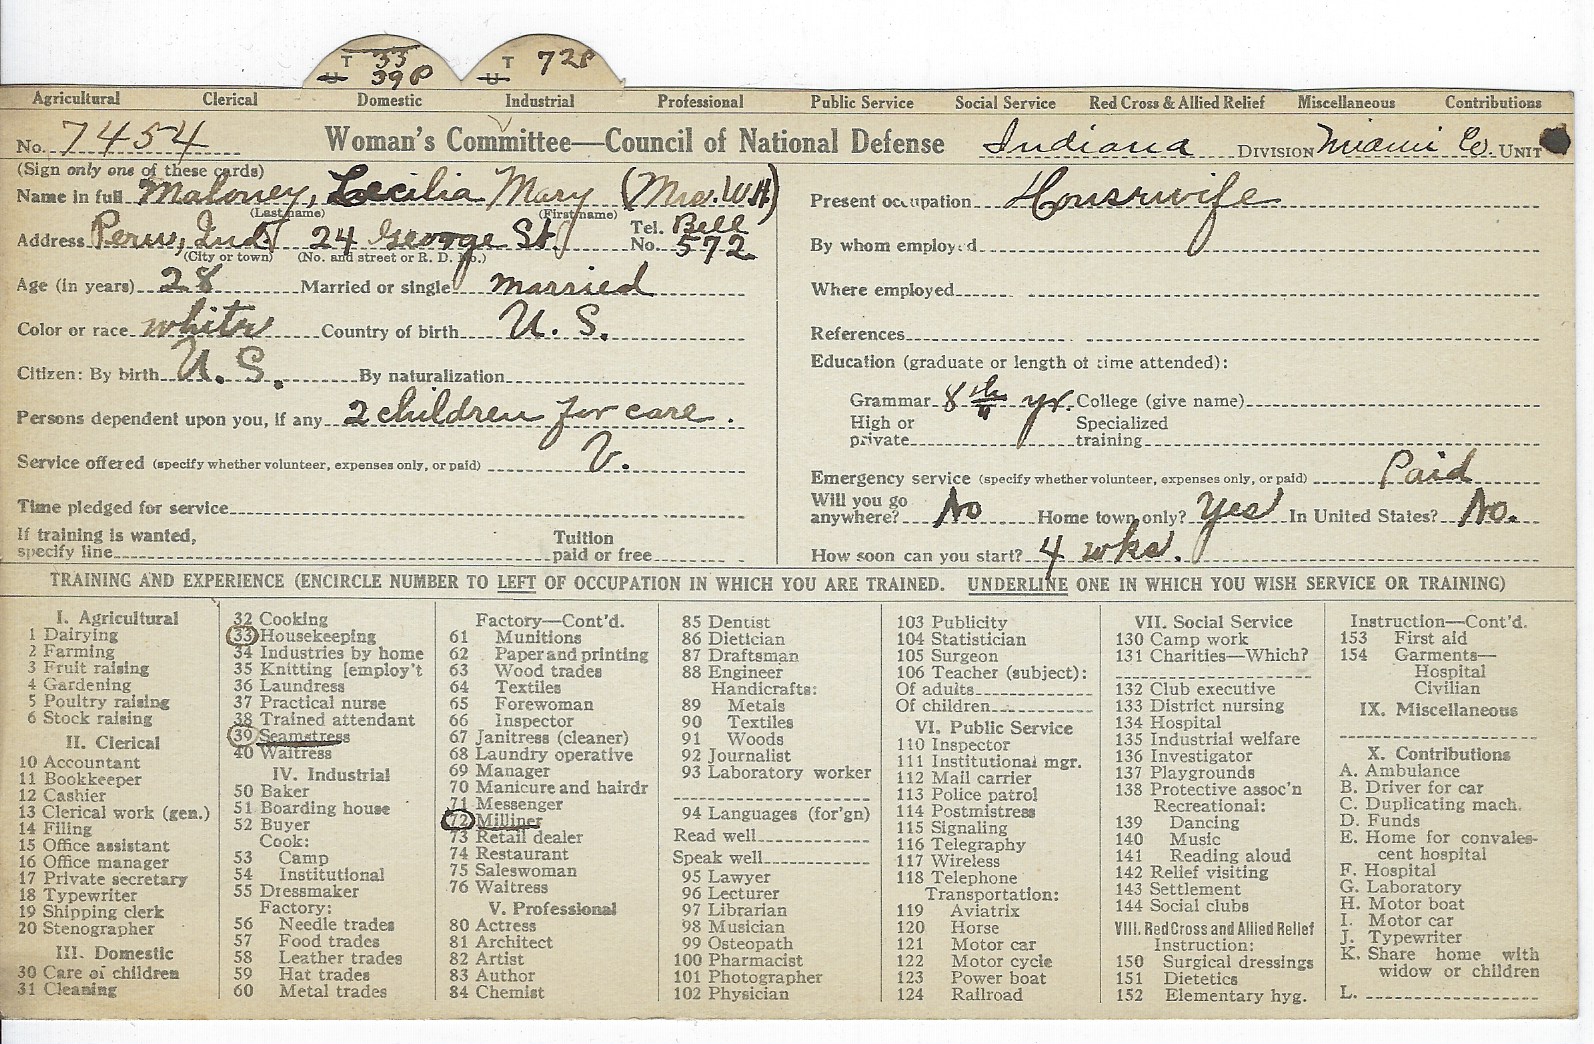 T 33 T 72P
U 39P U
Agricultural Clerical Domestic Industrial Professional Public Service Social Service Red Cross & Allied Relief Miscellaneous Contributions
No. 7454 Woman's Committee—Council of National Defense Indiana DIVISION Miami Co. UNIT
(Sign only one of these cards)
Name in full Maloney, Cecilia Mary (Mrs. W.H.)
(Last name) (First name)
Address Peru, Ind. 24 George St. Tel. No. Bell 572
(City or town) (No. and street or R. D. No.)
Age (in years) 28 Married or single married
Color or race white Country of birth U. S.
Citizen: By birth U. S. By naturalization
Persons dependent upon you, if any 2 children for care.
Service offered (specify whether volunteer, expenses only, or paid) V.
Time pledged for service
If training is wanted,
specify line Tuition paid or free
Present occupation Housewife
By whom employed
Where employed
References
Education (graduate or length of time attended):
Grammar 8th yr. College (give name)
High or private Specialized training
Emergency service (specify whether volunteer, expenses only, or paid) Paid
Will you go anywhere? No Home town only? Yes In United States? No.
How soon can you start? 4 wks.
TRAINING AND EXPERIENCE (ENCIRCLE NUMBER TO LEFT OF OCCUPATION IN WHICH YOU ARE TRAINED. UNDERLINE ONE IN WHICH YOU WISH SERVICE OR TRAINING)
I. Agricultural
1 Dairying
2 Farming
3 Fruit raising
4 Gardening
5 Poultry raising
6 Stock raising
II. Clerical
10 Accountant
11 Bookkeeper
12 Cashier
13 Clerical work (gen.)
14 Filing
15 Office assistant
16 Office manager
17 Private secretary
18 Typewriter
19 Shipping clerk
20 Stenographer
III. Domestic
30 Care of children
31 Cleaning
32 Cooking
33 Housekeeping
34 Industries by home
35 Knitting [employ't
36 Laundress
37 Practical nurse
38 Trained attendant
39 Seamstress
40 Waitress
IV. Industrial
50 Baker
51 Boarding house
52 Buyer
Cook:
53 Camp
54 Institutional
55 Dressmaker
Factory:
56 Needle trades
57 Food trades
58 Leather trades
59 Hat trades
60 Metal trades
Factory—Cont'd.
61 Munitions
62 Paper and printing
63 Wood trades
64 Textiles
65 Forewoman
66 Inspector
67 Janitress (cleaner)
68 Laundry operative
69 Manager
70 Manicure and hairdr
71 Messenger
72 Milliner
73 Retail dealer
74 Restaurant
75 Saleswoman
76 Waitress
V. Professional
80 Actress
81 Architect
82 Artist
83 Author
84 Chemist
85 Dentist
86 Dietician
87 Draftsman
88 Engineer
Handicrafts:
89 Metals
90 Textiles
91 Woods
92 Journalist
93 Laboratory worker
94 Languages (for'gn)
Read well
Speak well
95 Lawyer
96 Lecturer
97 Librarian
98 Musician
99 Osteopath
100 Pharmacist
101 Photographer
102 Physician
103 Publicity
104 Statistician
105 Surgeon
106 Teacher (subject):
Of adults
Of children
VI. Public Service
110 Inspector
111 Institutional mgr.
112 Mail carrier
113 Police patrol
114 Postmistress
115 Signaling
116 Telegraphy
117 Wireless
118 Telephone
Transportation:
119 Aviatrix
120 Horse
121 Motor car
122 Motor cycle
123 Power boat
124 Railroad
VII. Social Service
130 Camp work
131 Charities—Which?
132 Club executive
133 District nursing
134 Hospital
135 Industrial welfare
136 Investigator
137 Playgrounds
138 Protective assoc'n
Recreational:
139 Dancing
140 Music
141 Reading aloud
142 Relief visiting
143 Settlement
144 Social clubs
VIII. Red Cross and Allied Relief
Instruction:
150 Surgical dressings
151 Dietetics
152 Elementary hyg.
Instruction—Cont'd.
153 First aid
154 Garments—
Hospital
Civilian
IX. Miscellaneous
X. Contributions
A. Ambulance
B. Driver for car
C. Duplicating mach.
D. Funds
E. Home for convales-
cent hospital
F. Hospital
G. Laboratory
H. Motor boat
I. Motor car
J. Typewriter
K. Share home with
widow or children
L.